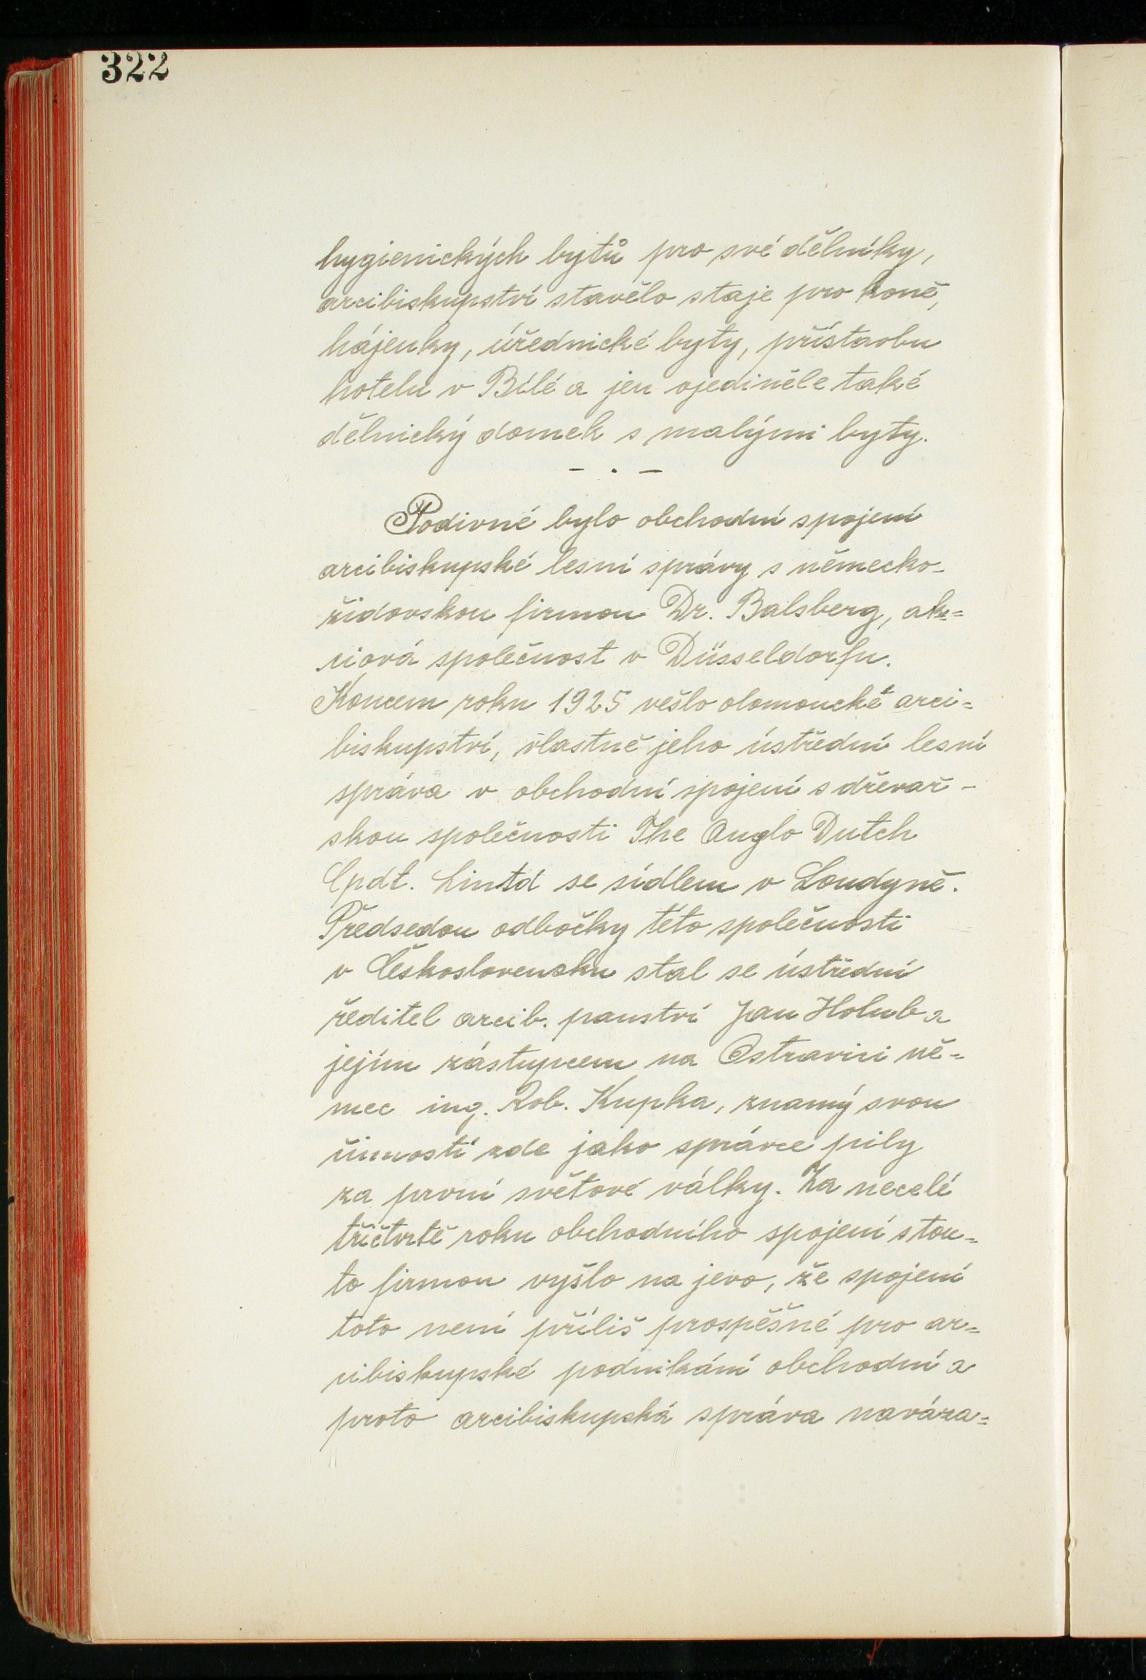 322
hygienických bytů pro své dělníky,
arcibiskupství stavělo staje pro koně,
hájenky, úřednické byty, přístavbu
hotelu v Bílé a jen ojediněle také
dělnický domek s malými byty.
— . —
Podivné bylo obchodní spojení
arcibiskupské lesní správy s německo-
židovskou firmou Dr. Balsberg, ak=
ciová společnost v Düsseldorfu.
Koncem roku 1925 vešlo olomoucké arci=
biskupství, vlastně jeho ústřední lesní
správa v obchodní spojení s dřevař-
skou společnosti The Anglo Dutch
Cpdt. Lintd se sídlem v Londyně.
Předsedou odbočky této společnosti
v Československu stal se ústřední
ředitel arcib. panství Jan Holub a
jejím zástupcem na Ostravici ně=
mec ing. Rob. Kupka, znamý svou
činností zde jako správce pily
za první světové války. Za necelé
tříčtvrtě roku obchodního spojení s tou=
to firmou vyšlo na jevo, že spojení
toto není příliš prospěšné pro ar=
cibiskupské podnikání obchodní a
proto arcibiskupská správa naváza=